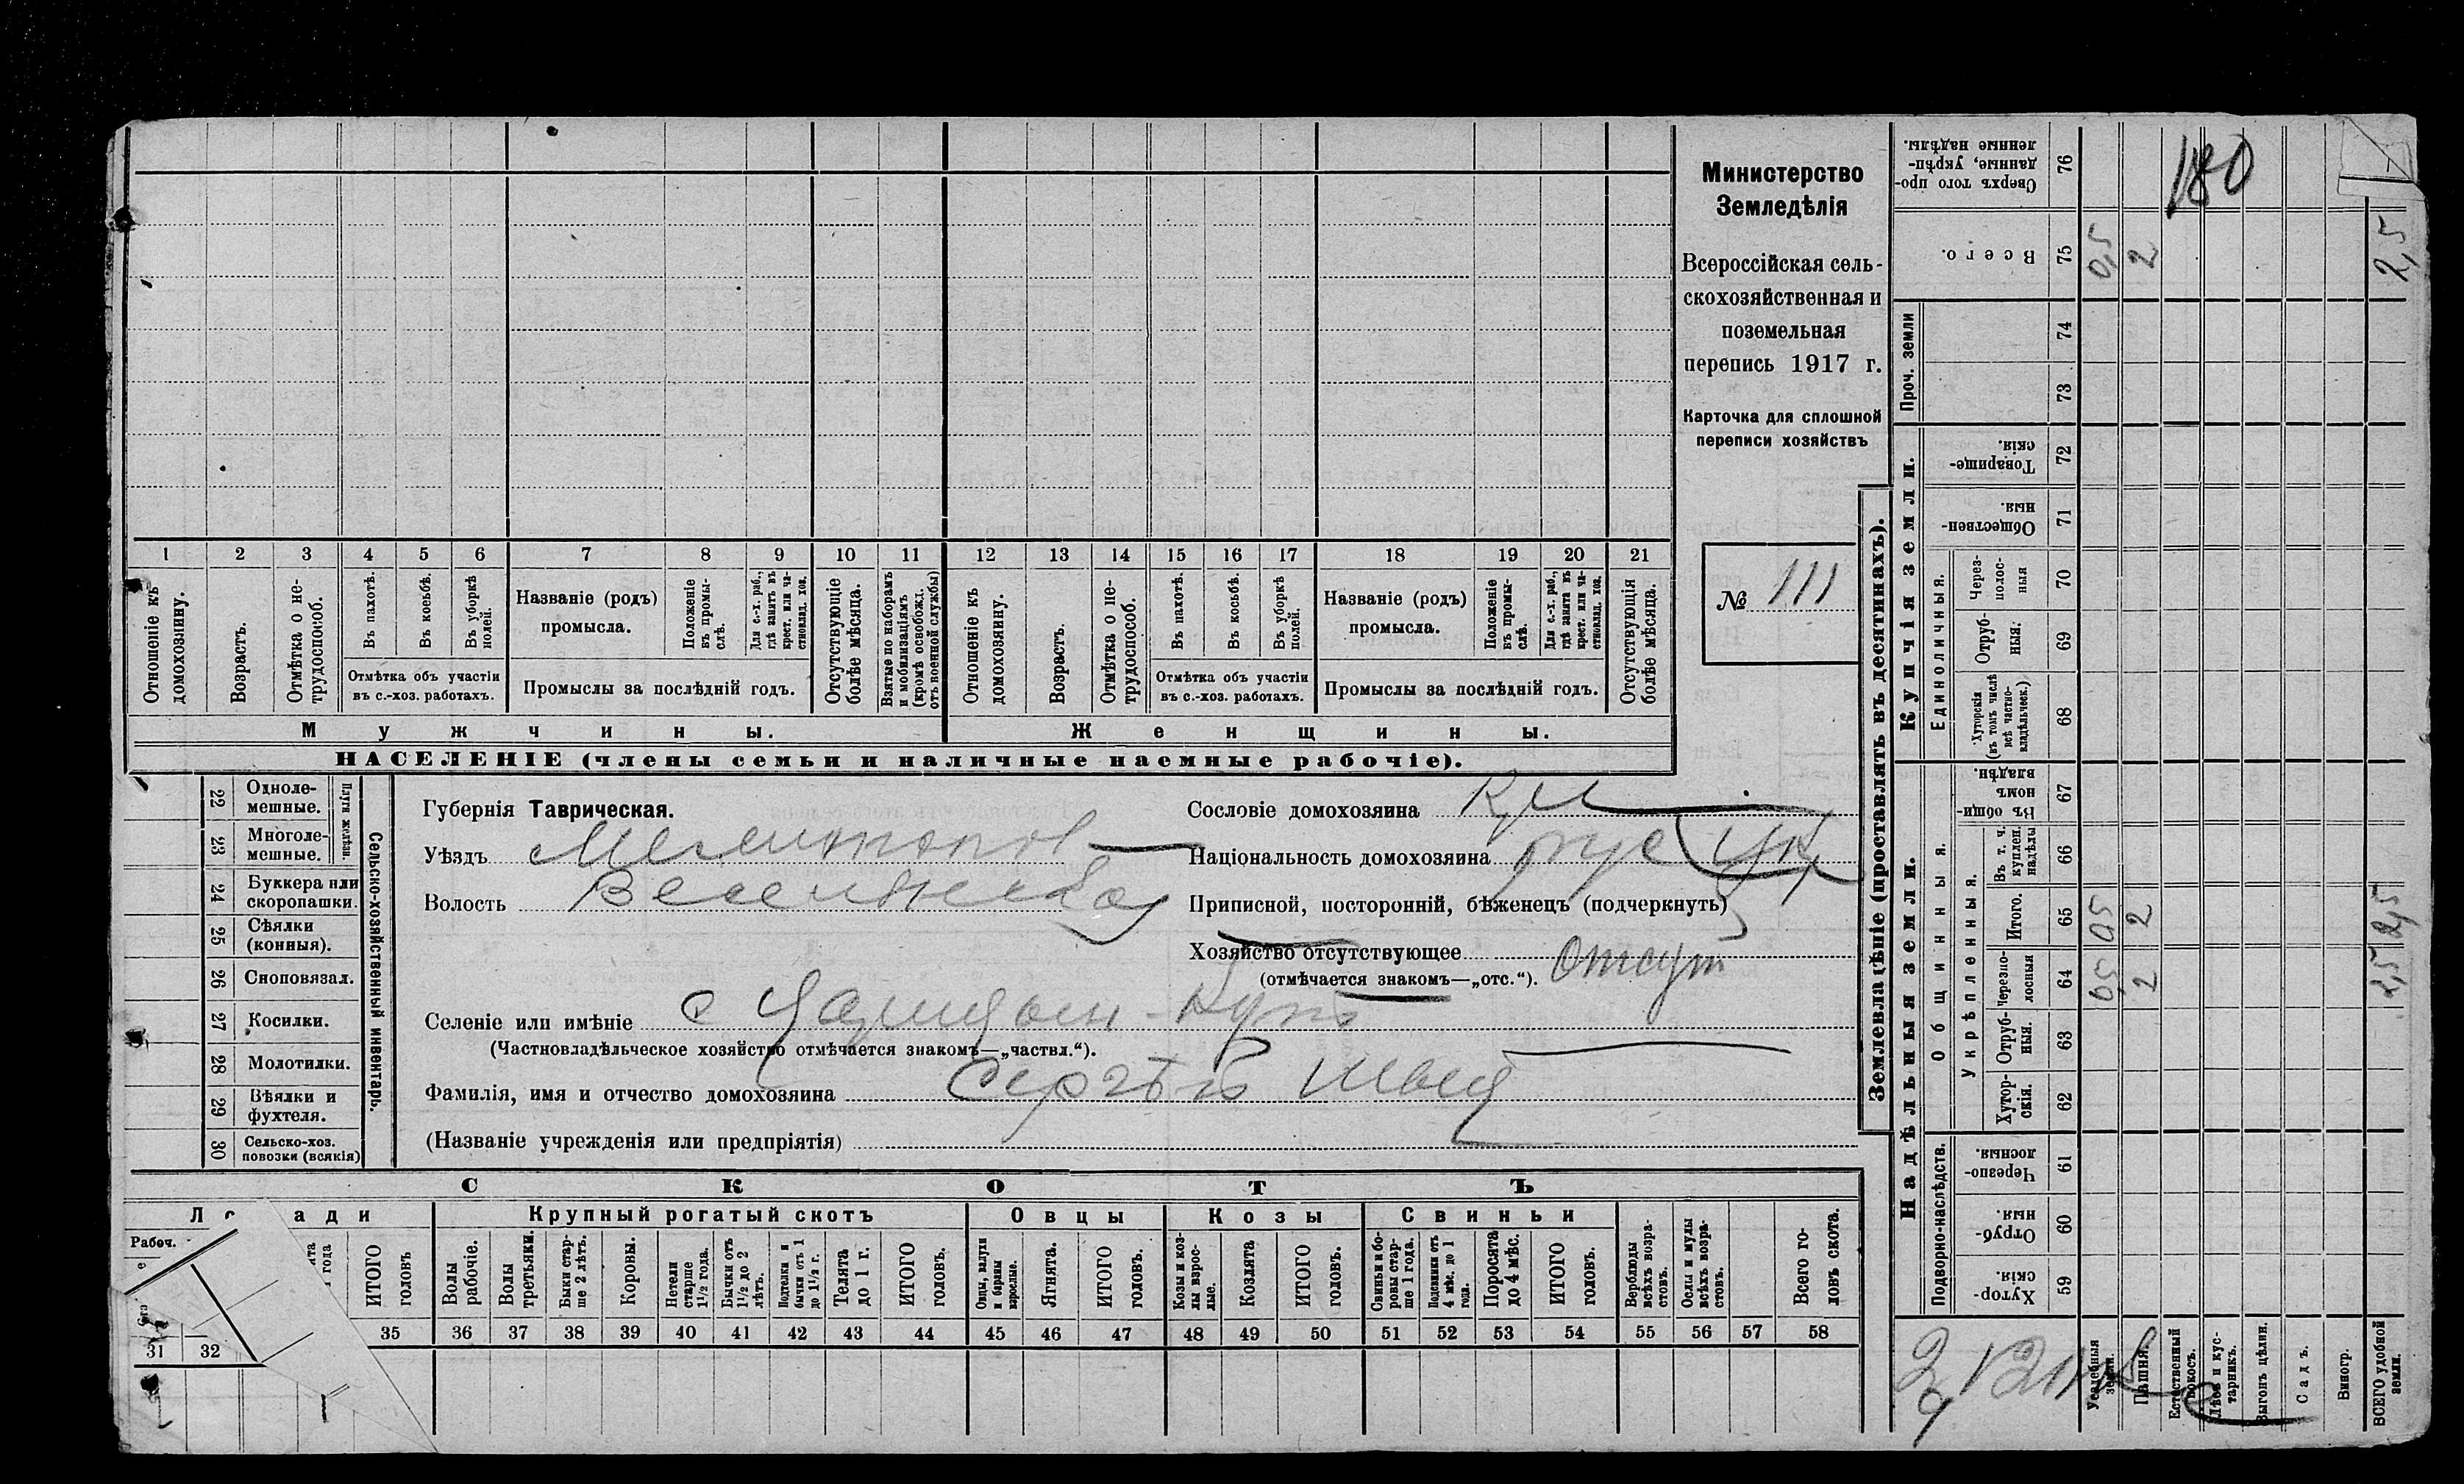 Министерство
Земледѣлія
Всероссійская сель-
скохозяйственная и
поземельная
перепись 1917 г.
Карточка для сплошной
переписи хозяйствъ
№ 111
1 2 3 4 5 6 7 8 9 10 11 12 13 14 15 16 17 18 19 20 21
Отношеніе къ домохозяину.
Возрастъ.
Отмѣтка о не-трудоспособ.
Въ пахотѣ.
Въ косьбѣ.
Въ уборкѣ полей.
Отмѣтка объ участіи
въ с.-хоз. работахъ.
Названіе (родъ)
промысла.
Положеніе въ промы-слѣ.
Для с.-х. раб., гдѣ занятъ въ крест. или ча-стновлад. хоз.
Промыслы за послѣдній годъ.
Отсутствующіе болѣе мѣсяца.
Взятые по наборамъ и мобилизаціямъ (кромѣ освобожд. отъ военной службы)
Отношеніе къ домохозяину.
Возрастъ.
Отмѣтка о не-трудоспособ.
Въ пахотѣ.
Въ косьбѣ.
Въ уборкѣ полей.
Отмѣтка объ участіи
въ с.-хоз. работахъ.
Названіе (родъ)
промысла.
Положеніе въ промы-слѣ.
Для с.-х. раб., гдѣ занята въ крест. или ча-стновлад. хоз.
Промыслы за послѣдній годъ.
Отсутствующія болѣе мѣсяца.
Мужчины.
Женщины.
НАСЕЛЕНІЕ (члены семьи и наличные наемные рабочіе).
22 Одноле-мешные.
23 Многоле-мешные.
Плуги желѣзн.
24 Буккера или скоропашки.
25 Сѣялки (конныя).
26 Сноповязал.
27 Косилки.
28 Молотилки.
29 Вѣялки и фухтеля.
30 Сельско-хоз. повозки (всякія)
Сельско-хозяйственный инвентарь.
Губернія Таврическая.
Уѣздъ Мелитопол
Волость Веселянская
Сословіе домохозяина
Національность домохозяина рус Ук
Приписной, посторонній, бѣженецъ (подчеркнуть)
Хозяйство отсутствующее Отсут
(отмѣчается знакомъ—„отс.“).
Селеніе или имѣніе с Царицын-Кутъ
(Частновладѣльческое хозяйство отмѣчается знакомъ—„частвл.“).
Фамилія, имя и отчество домохозяина Сергѣй Швец
(Названіе учрежденія или предпріятія)
СКОТЪ
Крупный рогатый скотъ
Овцы
Козы
Свиньи
Рабоч.
ИТОГО головъ
Волы рабочіе.
Волы третьяки.
Быки стар-ше 2 лѣтъ.
Коровы.
Нетели старше 1½ года.
Бычки отъ 1½ до 2 лѣтъ.
Подтелки и бычки отъ 1 до 1½ г.
Телята до 1 г.
ИТОГО головъ.
Овцы, валухи и бараны взрослые.
Ягнята.
ИТОГО головъ.
Козы и коз-лы взрос-лые.
Козлята
ИТОГО головъ.
Свиньи и бо-ровы стар-ше 1 года.
Подсвинки отъ 4 мѣс. до 1 года.
Поросята до 4 мѣс.
ИТОГО головъ.
Верблюды всѣхъ возра-стовъ.
Ослы и мулы всѣхъ возра-стовъ.
Всего го-ловъ скота.
31 32 35 36 37 38 39 40 41 42 43 44 45 46 47 48 49 50 51 52 53 54 55 56 57 58
Землевладѣніе (проставлять въ десятинахъ).
Надѣльныя земли.
Купчія земли.
Проч. земли
Подворно-наслѣдств.
Общинныя
Укрѣпленныя.
Единоличныя.
Хутор-скія. 59
Отруб-ныя. 60
Черезпо-лосныя. 61
Хутор-скія. 62
Отруб-ныя. 63
Черезпо-лосныя 64 0,5 2 2,5
Итого. 65 0,5 2 2,5
Въ т. ч. куплен. надѣлы 66
Въ общин-номъ владѣн. 67
Хуторскія (въ томъ числѣ всѣ частно-владѣльческ.) 68
Отруб-ныя. 69
Через-полос-ныя 70
Обществен-ныя. 71
Товарище-скія. 72
73
74
Всего. 75 0,5 2 2,5
Сверхъ того про-данные, укрѣп-ленные надѣлы. 76
180
Усадебныя земли.
Пашня.
Естественный покосъ.
Лѣсъ и кус-тарникъ.
Выгонъ цѣлин.
Садъ.
Виногр.
ВСЕГО удобной земли.